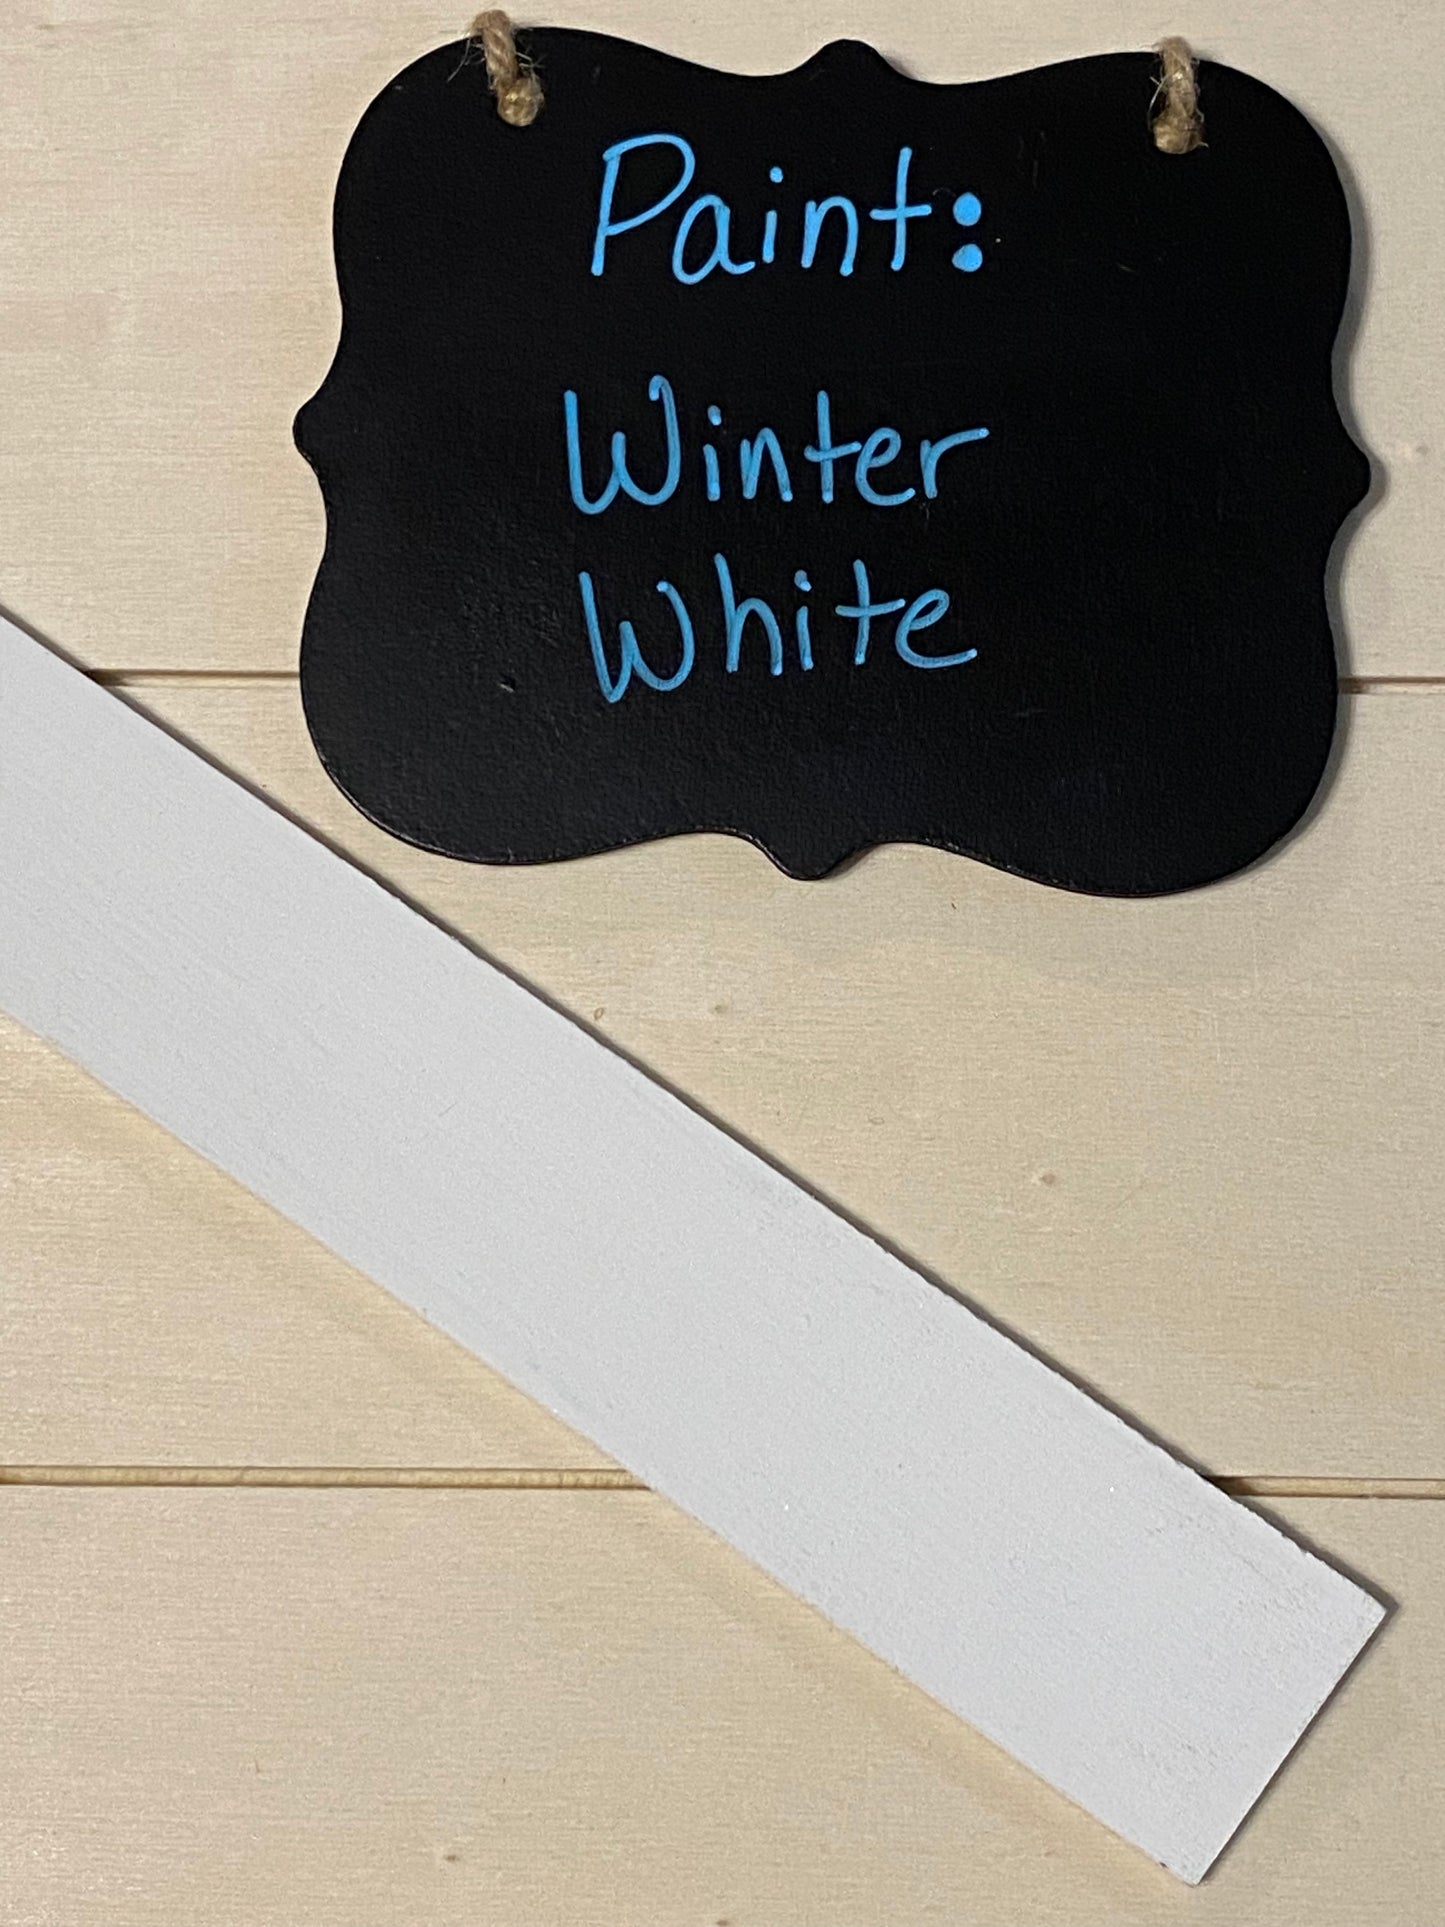 Paint:
Winter
White